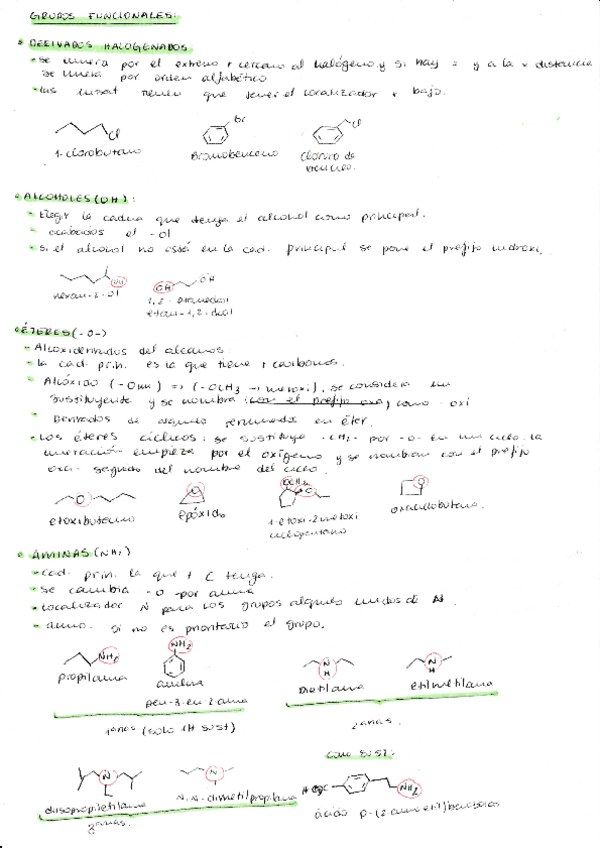 GRUPOS FUNCIONALES:
DERIVADOS HALOGENADOS
- se numera por el extremo + cercano al halógeno y si hay = y a la = distancia
se numera por orden alfabético
- las insat tienen que tener el localizador + bajo.
Cl
Br
Cl
1-clorobutano
Bromobenceno
Cloruro de
ALCOHOLES (OH):
- Elegir la cadena que tenga el alcohol como principal.
- acabados el -ol
- si el alcohol no está en la cad. principal se pone el prefijo hidroxi.
OH
OH
OH
hexan-2-ol
1,2-etanodiol
etan-1,2-diol
ÉTERES (-O-)
- Alcoxiderivados del alcanos.
- la cad. prin. es la que tiene + carbonos.
- Alcóxido (-OR) => (-OCH3 → metoxi), se considera un
sustituyente y se nombra (con el prefijo oxa) como -oxi
- Derivados de alquilo terminados en éter.
- Los éteres cíclicos: se sustituye -CH2- por -O- en un ciclo. la
numeración empieza por el oxígeno y se nombran con el prefijo
oxa- seguido del nombre del ciclo.
O
O
OCH3
O
O
etoxibutano
epóxido
1-etoxi-2-metoxi
ciclopentano
oxaciclobutano.
AMINAS (NH2)
- cad. prin. la que + C tenga.
- se cambia -o por amina
- localizador N para los grupos alquilo unidos de N.
- amino. si no es prioritario el grupo.
NH2
NH2
N
H
N
H
propilamina
anilina
dietilamina
etilmetilamina
pen-3-en-2-amina
1arias (solo 1H sust)
2arias.
como sust:
N
N
HOOC
NH2
diisopropiletilamina
N,N-dimetilpropilamina
ácido p-(2-aminoetil)benzoico
3arias.